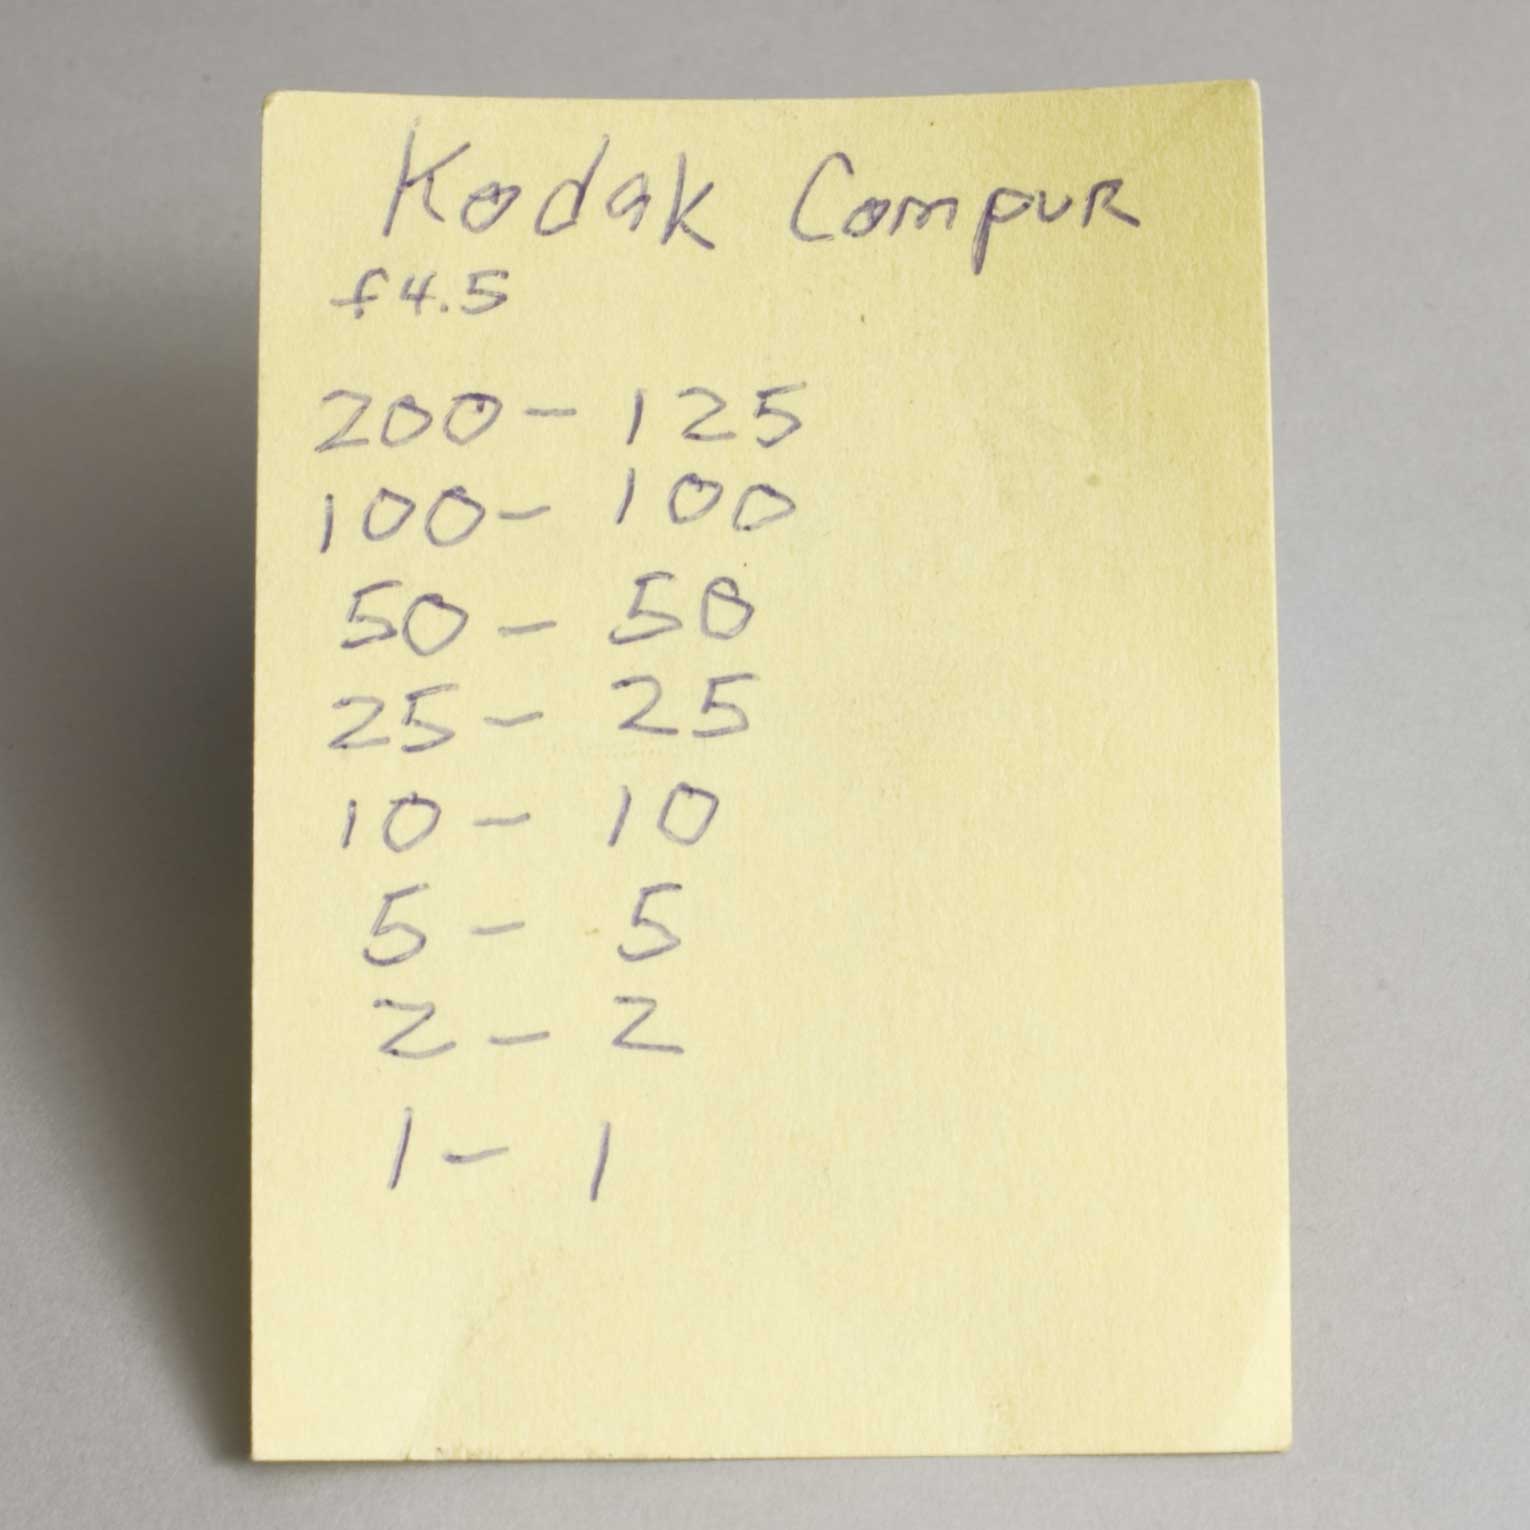 Kodak Compur
f4.5
200 - 125
100 - 100
50 - 50
25 - 25
10 - 10
5 - 5
2 - 2
1 - 1